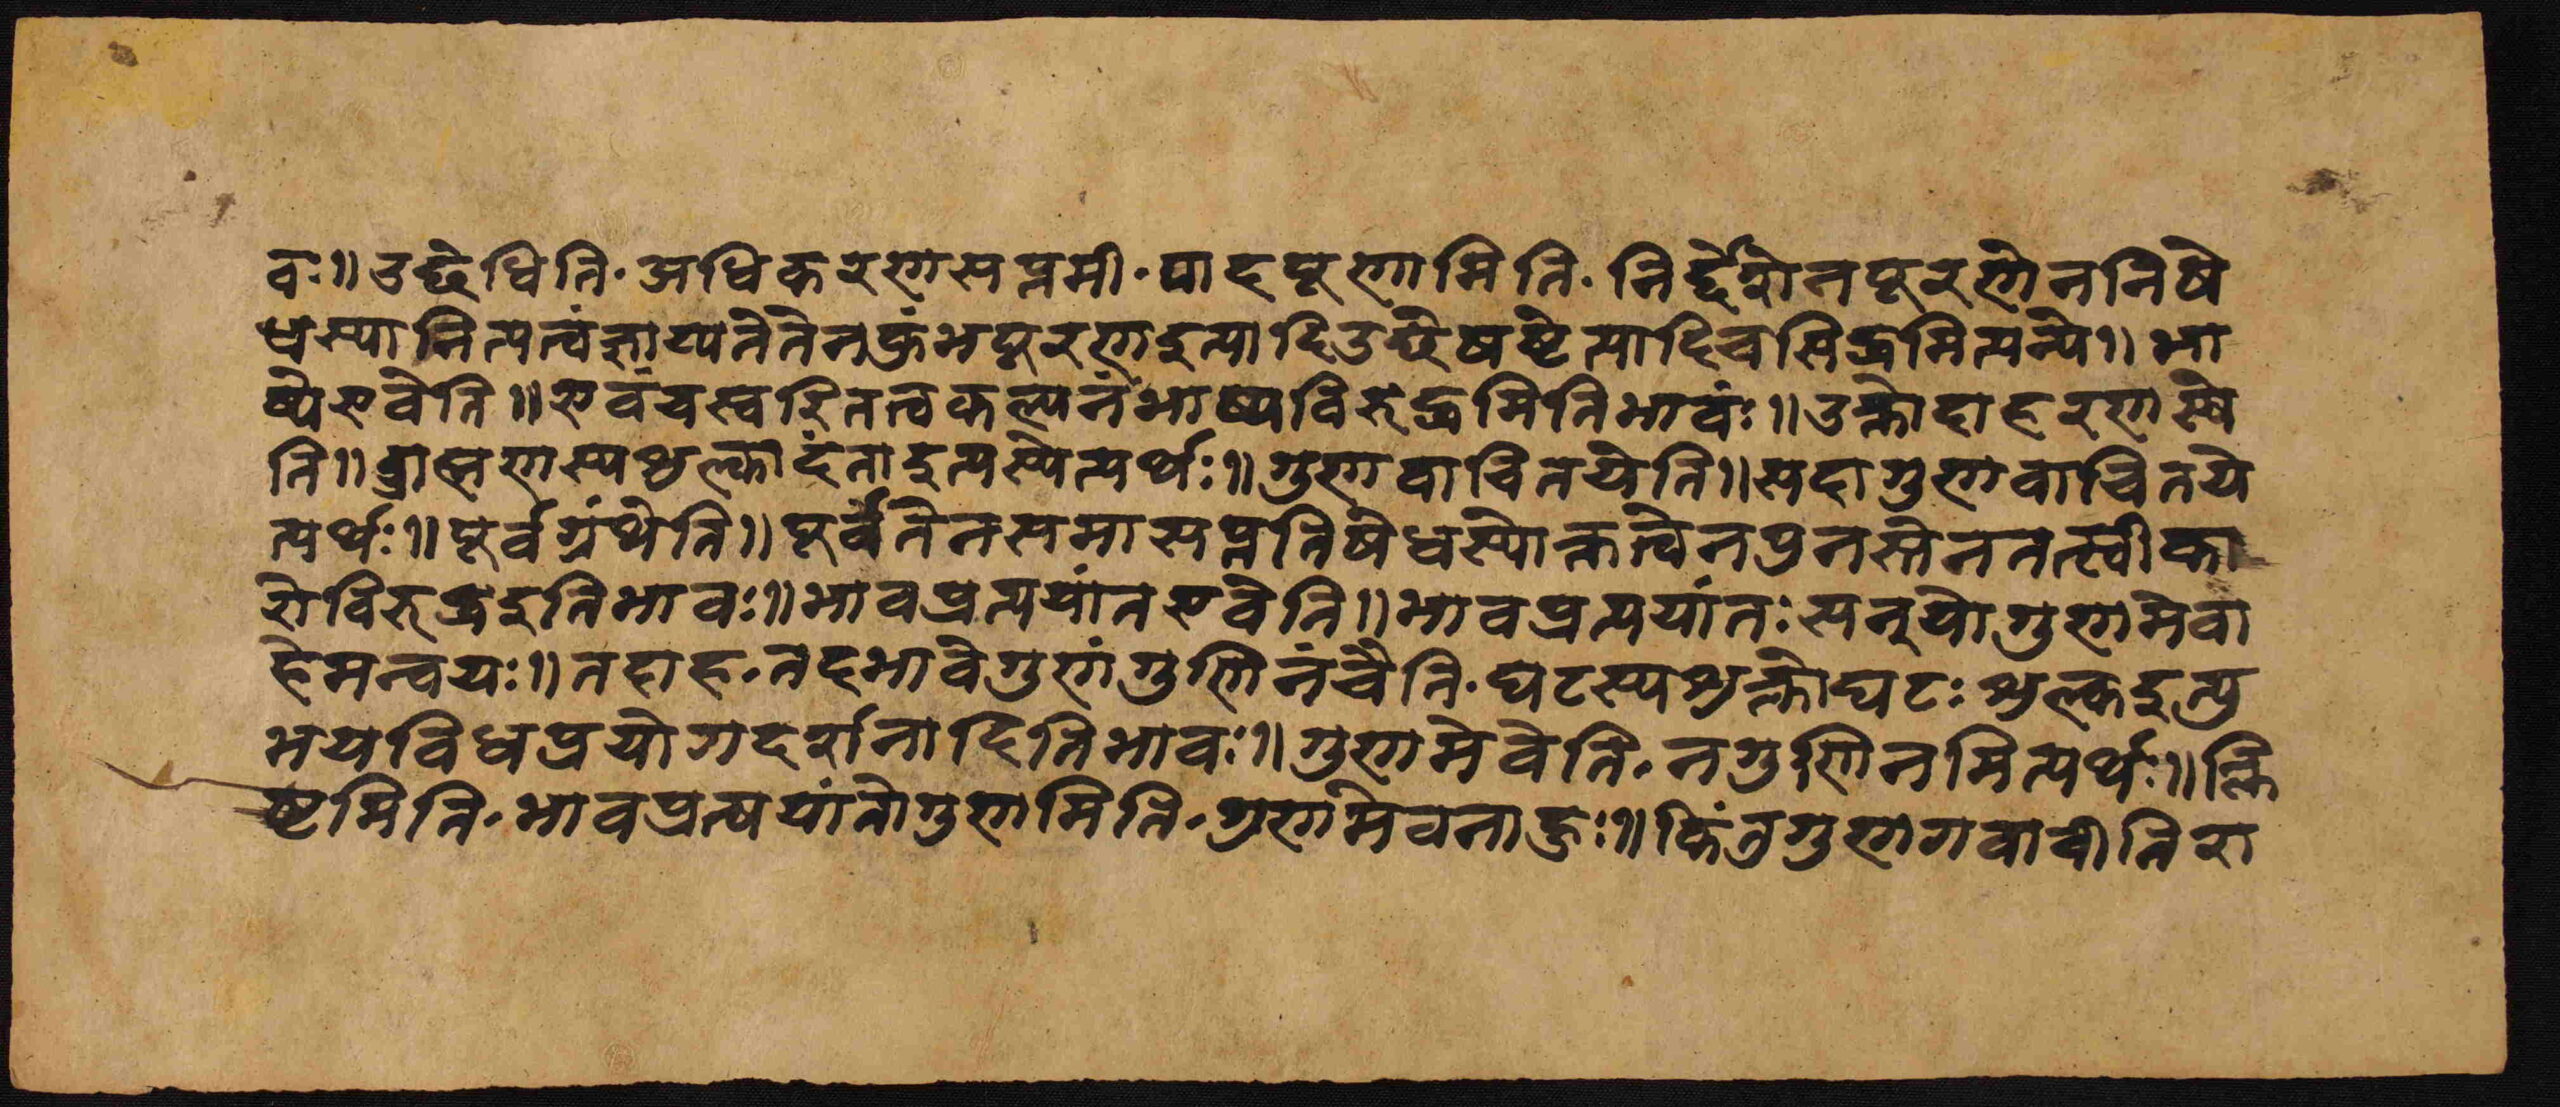 वः॥उद्धेष्विति·अधिकरणसप्तमी·पादपूरणमिति·निर्द्देशेनपूरणेननिषे
धस्यानित्यत्वंज्ञाप्यतेतेनकुंभपूरणइत्यादिउञ्छेषष्टेत्यादिचसिद्धमित्यन्ये॥भा
ष्येएवेति॥एवंचस्वरितत्वकल्पनंभाष्यविरुद्धमितिभावः॥उक्तोदाहरणस्थे
ति॥ब्राह्मणस्यशुल्कादंताइत्यस्येत्यर्थः॥गुणवाचितयेति॥सदागुणवाचितये
त्यर्थः॥पूर्वग्रंथेति॥पूर्वंतेनसमासप्रतिषेधस्योक्तत्वेनपुनस्तेनतत्स्वीका
रोविरुद्धइतिभावः॥भावप्रत्ययांतएवेति॥भावप्रत्ययांतःसन्योगुणमेवा
हेमन्वयः॥तदाह·तदभावेगुणंगुणिनंचैति·घटस्यशुक्लोघटःशुल्कइत्यु
भयविधप्रयोगदर्शनादितिभावः॥गुणमेवेति·नगुणिनमित्यर्थः॥क्लि
ष्टमिति·भावप्रत्ययांतोगुणमिति·गुणमेवनाहुः॥किंतुगुणगवाचीतिरा